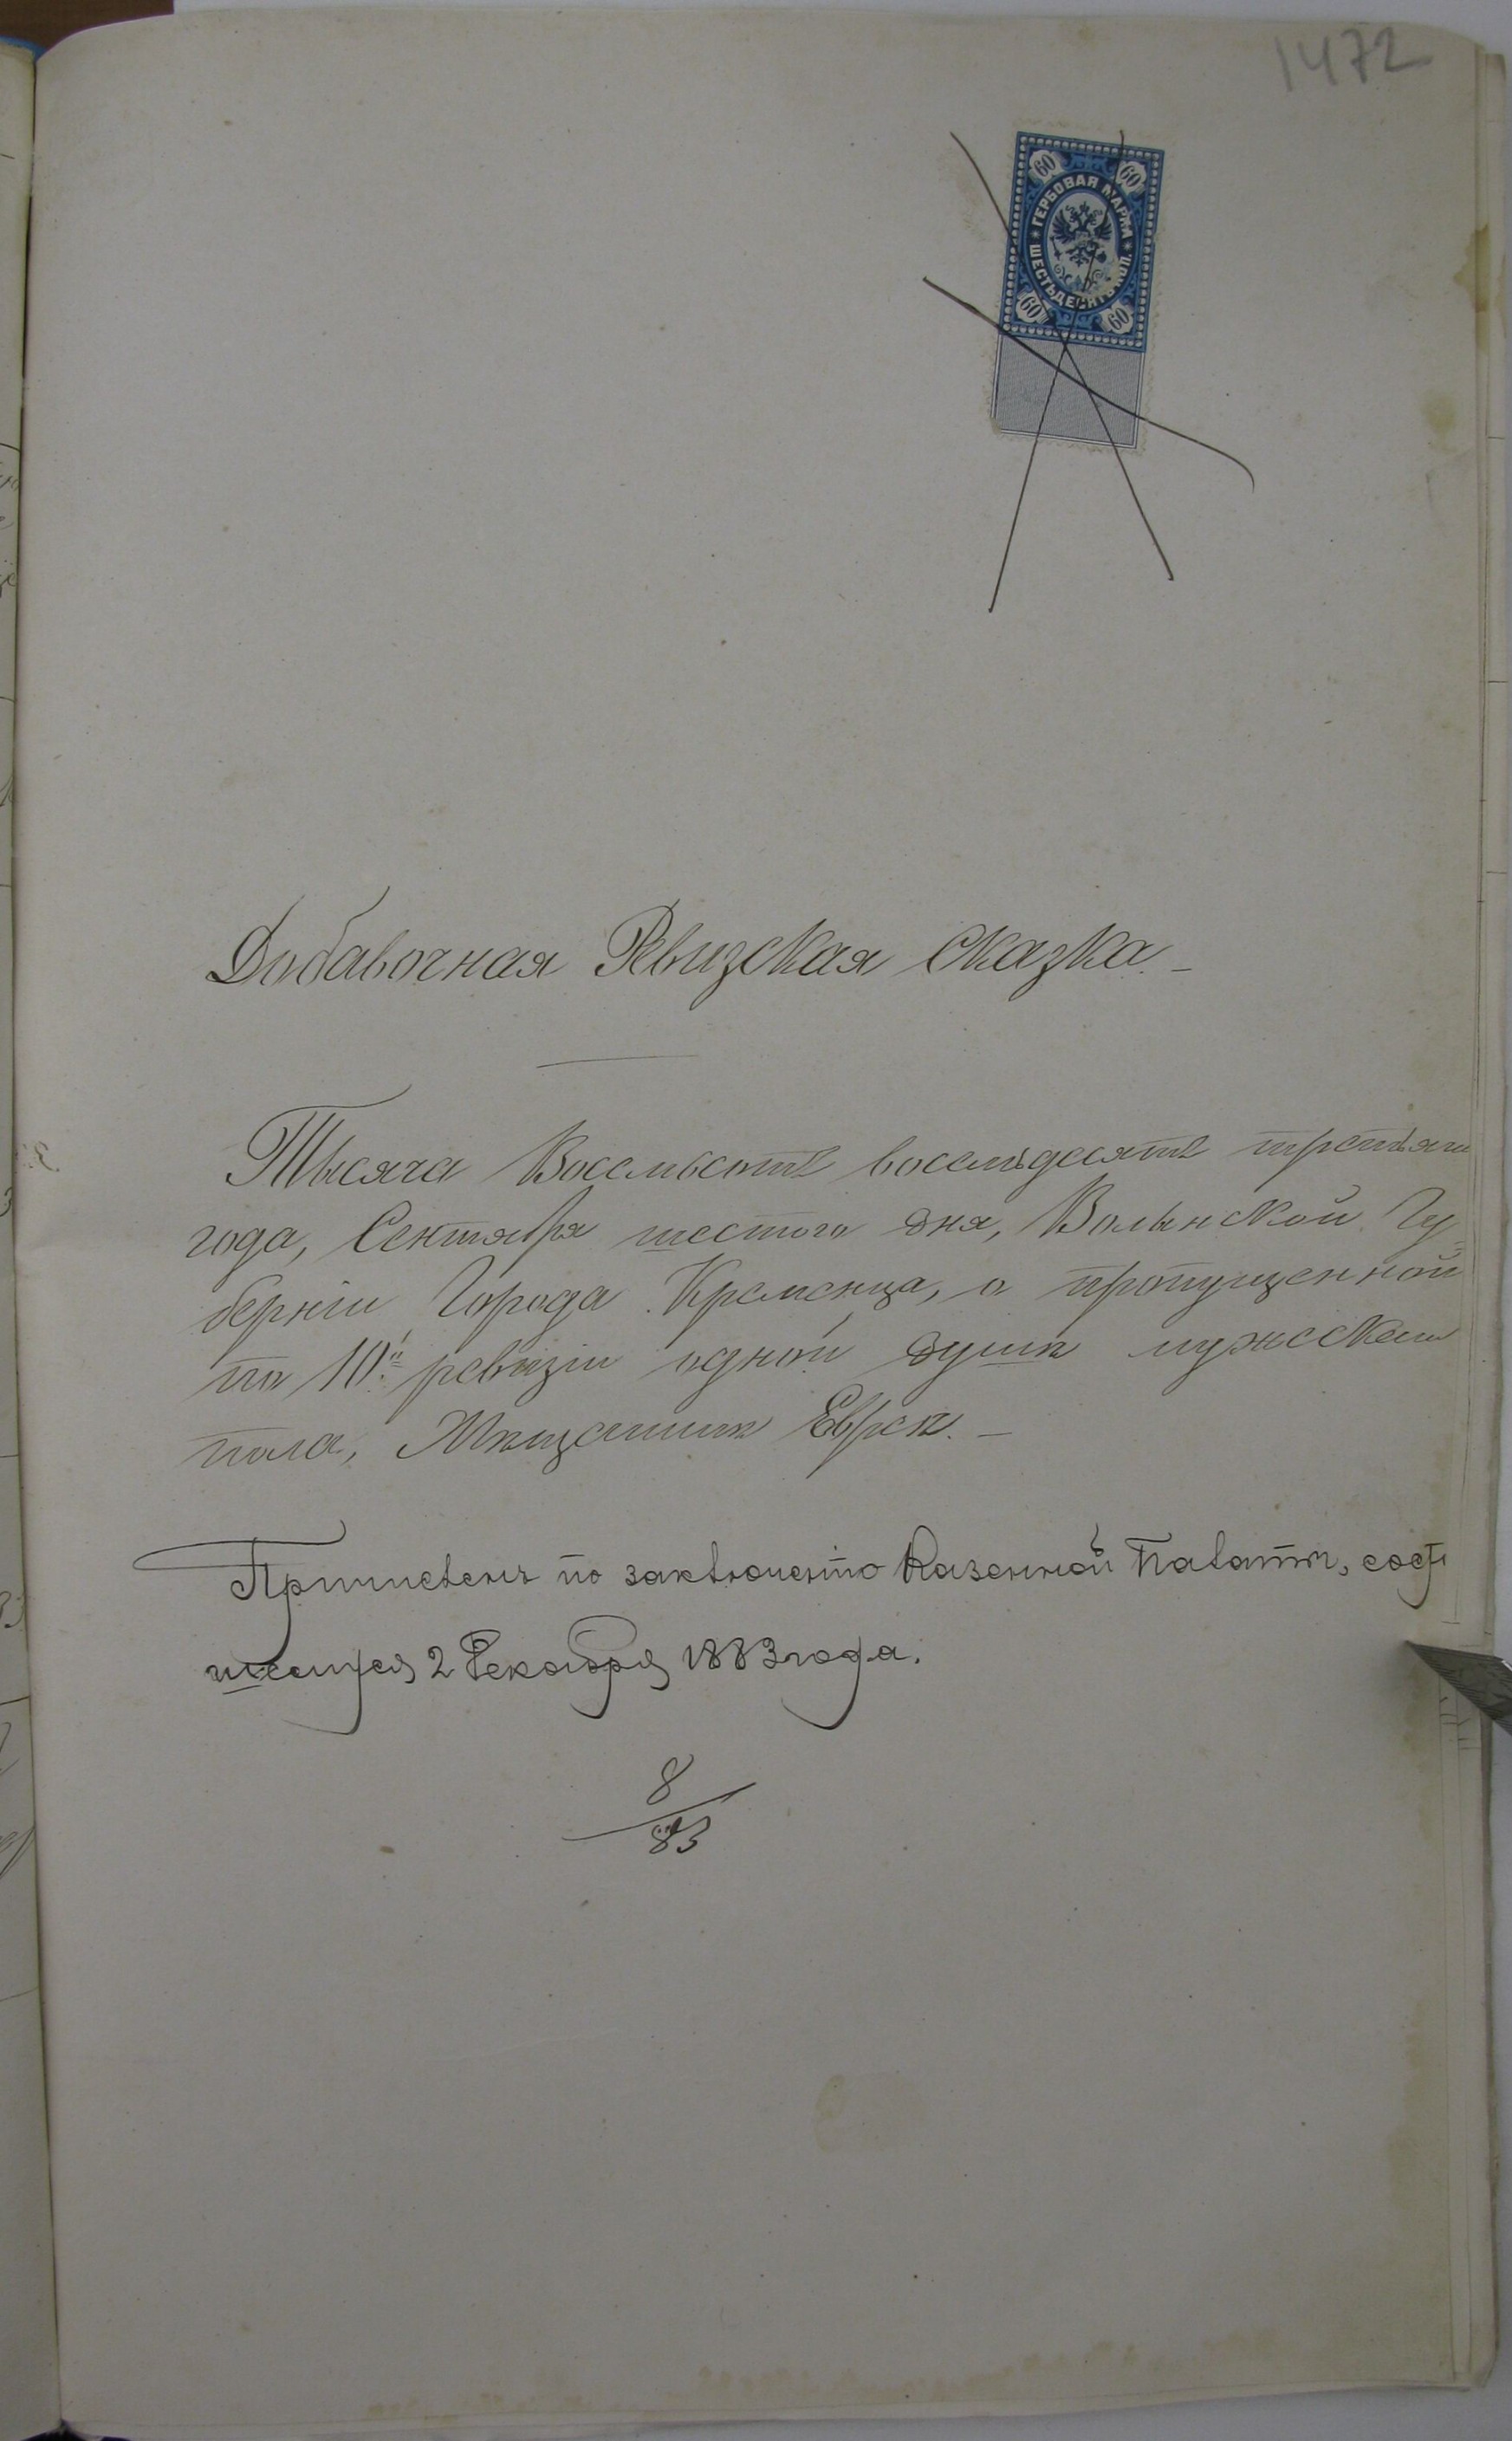 1472
60 60
ГЕРБОВАЯ МАРКА
ШЕСТЬДЕСЯТЪ КОП.
60 60
Добавочная Ревизская Сказка. –
Тысяча Восемьсотъ восемьдесятъ третьяго
года, Сентября шестого дня, Волынской Гу=
берніи Города Кременца, о пропущенной
по 10й ревизіи одной душѣ мужескаго
пола, Мѣщанинѣ Евреѣ. –
Причисленъ по заключенію Казенной Палаты, сост
шемуся 2 Декабря 1883 года.
8
83